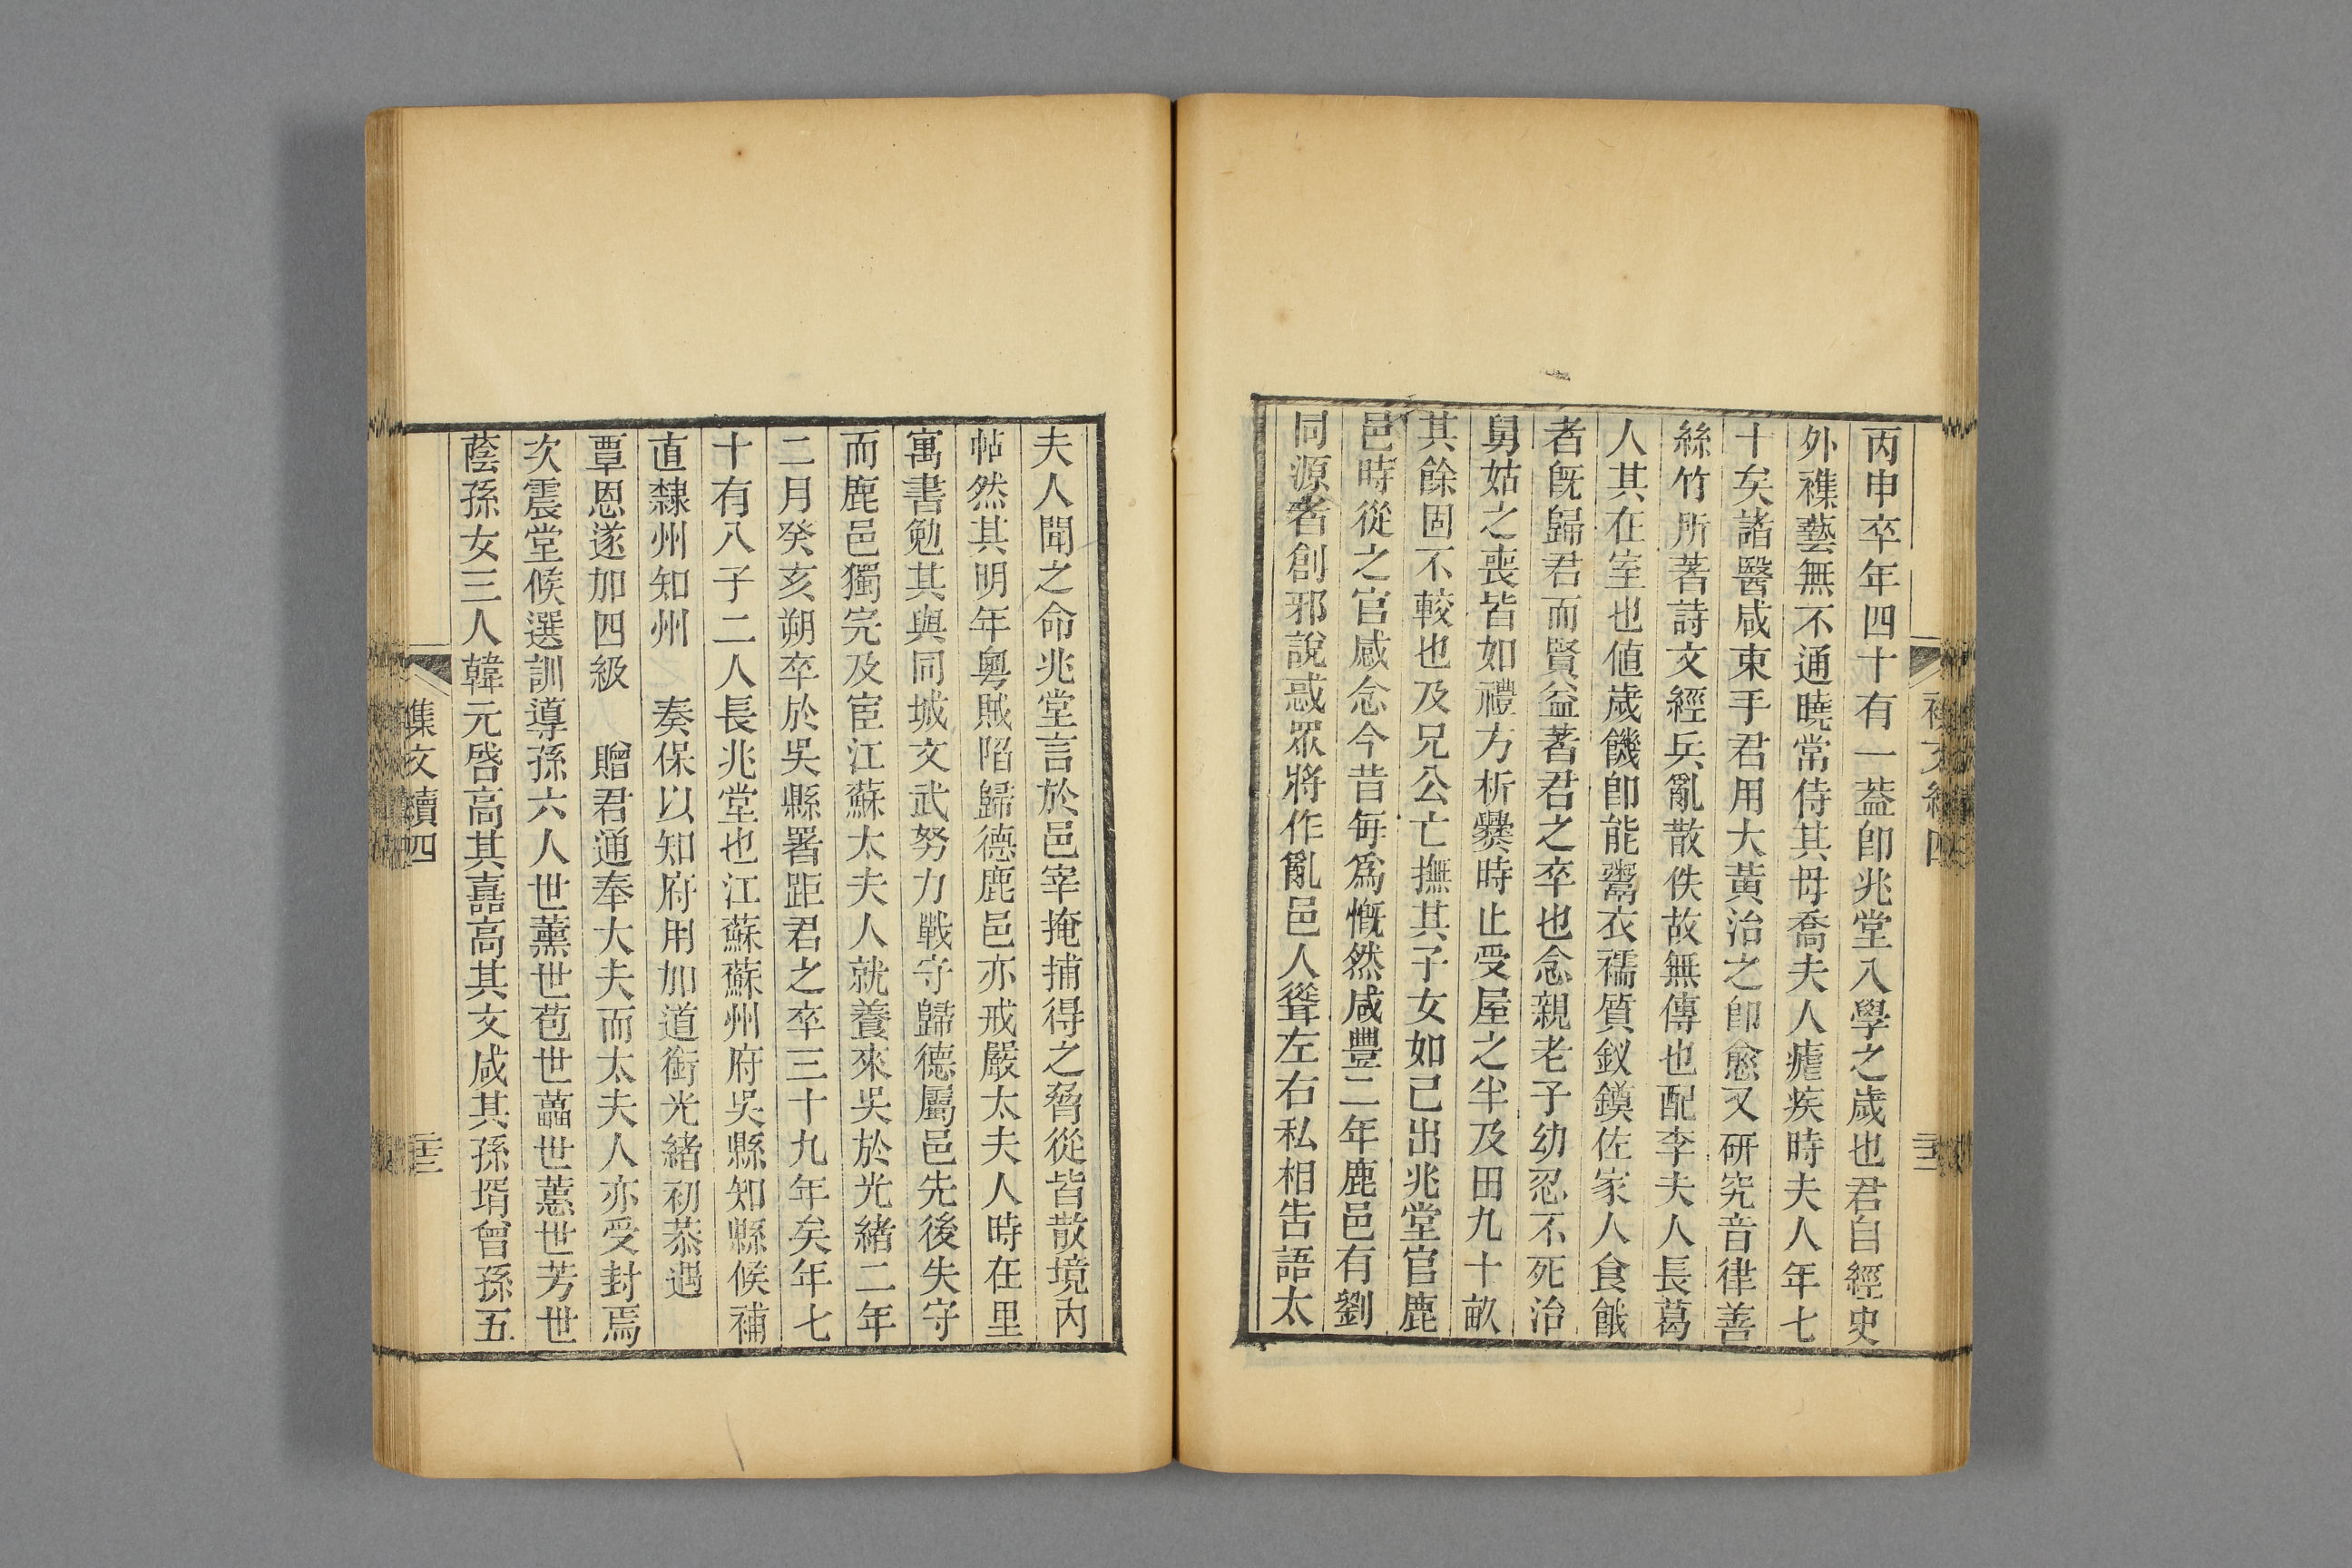 丙申卒年四十有一葢卽兆堂入學之歲也君自經史
外襍藝無不通曉常侍其母喬夫人瘧疾時夫人年七
十矣諸醫咸束手君用大黃治之卽愈又硏究音律善
絲竹所著詩文經兵亂散佚故無傳也配李夫人長葛
人其在室也值歲饑卽能鬻衣襦質釵鏌佐家人食餓
者旣歸君而賢益著君之卒也念親老子幼忍不死治
舅姑之喪皆如禮方析爨時止受屋之半及田九十畝
其餘固不較也及兄公亡撫其子女如己出兆堂官鹿
邑時從之官感念今昔每爲慨然咸豐二年鹿邑有劉
同源者創邪說惑眾將作亂邑人聳左右私相告語太
夫人聞之命兆堂言於邑宰掩捕得之脅從皆散境內
帖然其明年粵賊陷歸德鹿邑亦戒嚴太夫人時在里
寓書勉其與同城文武努力戰守歸德屬邑先後失守
而鹿邑獨完及宦江蘇太夫人就養來吳於光緒二年
二月癸亥朔卒於吳縣署距君之卒三十九年矣年七
十有八子二人長兆堂也江蘇蘇州府吳縣知縣候補
直隸州知州 奏保以知府用加道銜光緒初恭遇
覃恩遂加四級 贈君通奉大夫而太夫人亦受封焉
次震堂候選訓導孫六人世薰世苞世藟世蕙世芳世
蔭孫女三人韓元啓高其嚞高其文咸其孫壻曾孫五
集文續四